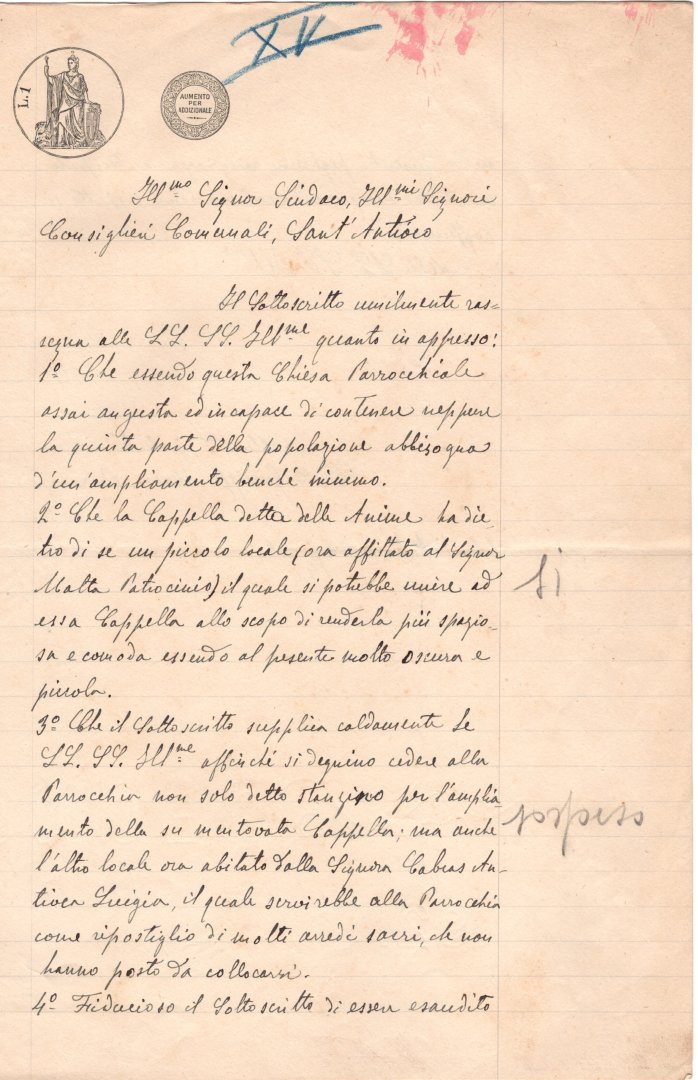 XV
L. 1
AUMENTO
PER
ADDIZIONALE
Ill.mo Signor Sindaco, Ill.mi Signori
Consiglieri Comunali, Sant'Antioco
Il Sottoscritto umilmente ras=
segna alle LL. SS. Ill.me quanto in appresso:
1º Che essendo questa Chiesa Parrocchiale
assai angusta ed incapace di contenere neppure
la quinta parte della popolazione abbisogna
d'un'ampliamento benché minimo.
2º Che la Cappella detta delle Anime ha die_
tro di se un piccolo locale (ora affittato al Signor
Matta Patrocinio) il quale si potrebbe unire ad
essa Cappella allo scopo di renderla più spazio_
sa e comoda essendo al pesente molto oscura e
piccola.
Si
3º Che il Sottoscritto supplica caldamente le
LL. SS. Ill.me affinché si degnino cedere alla
Parrocchia non solo detto stanzino per l'amplia_
mento della su mentovata Cappella; ma anche
l'altro locale ora abitato dalla Signora Cabras An_
tioca Luigia, il quale servirebbe alla Parrocchia
come ripostiglio di molti arredi sacri, ch non
hanno posto da collocarsi.
sospeso
4º Fiducioso il Sottoscritto di esser esaudito